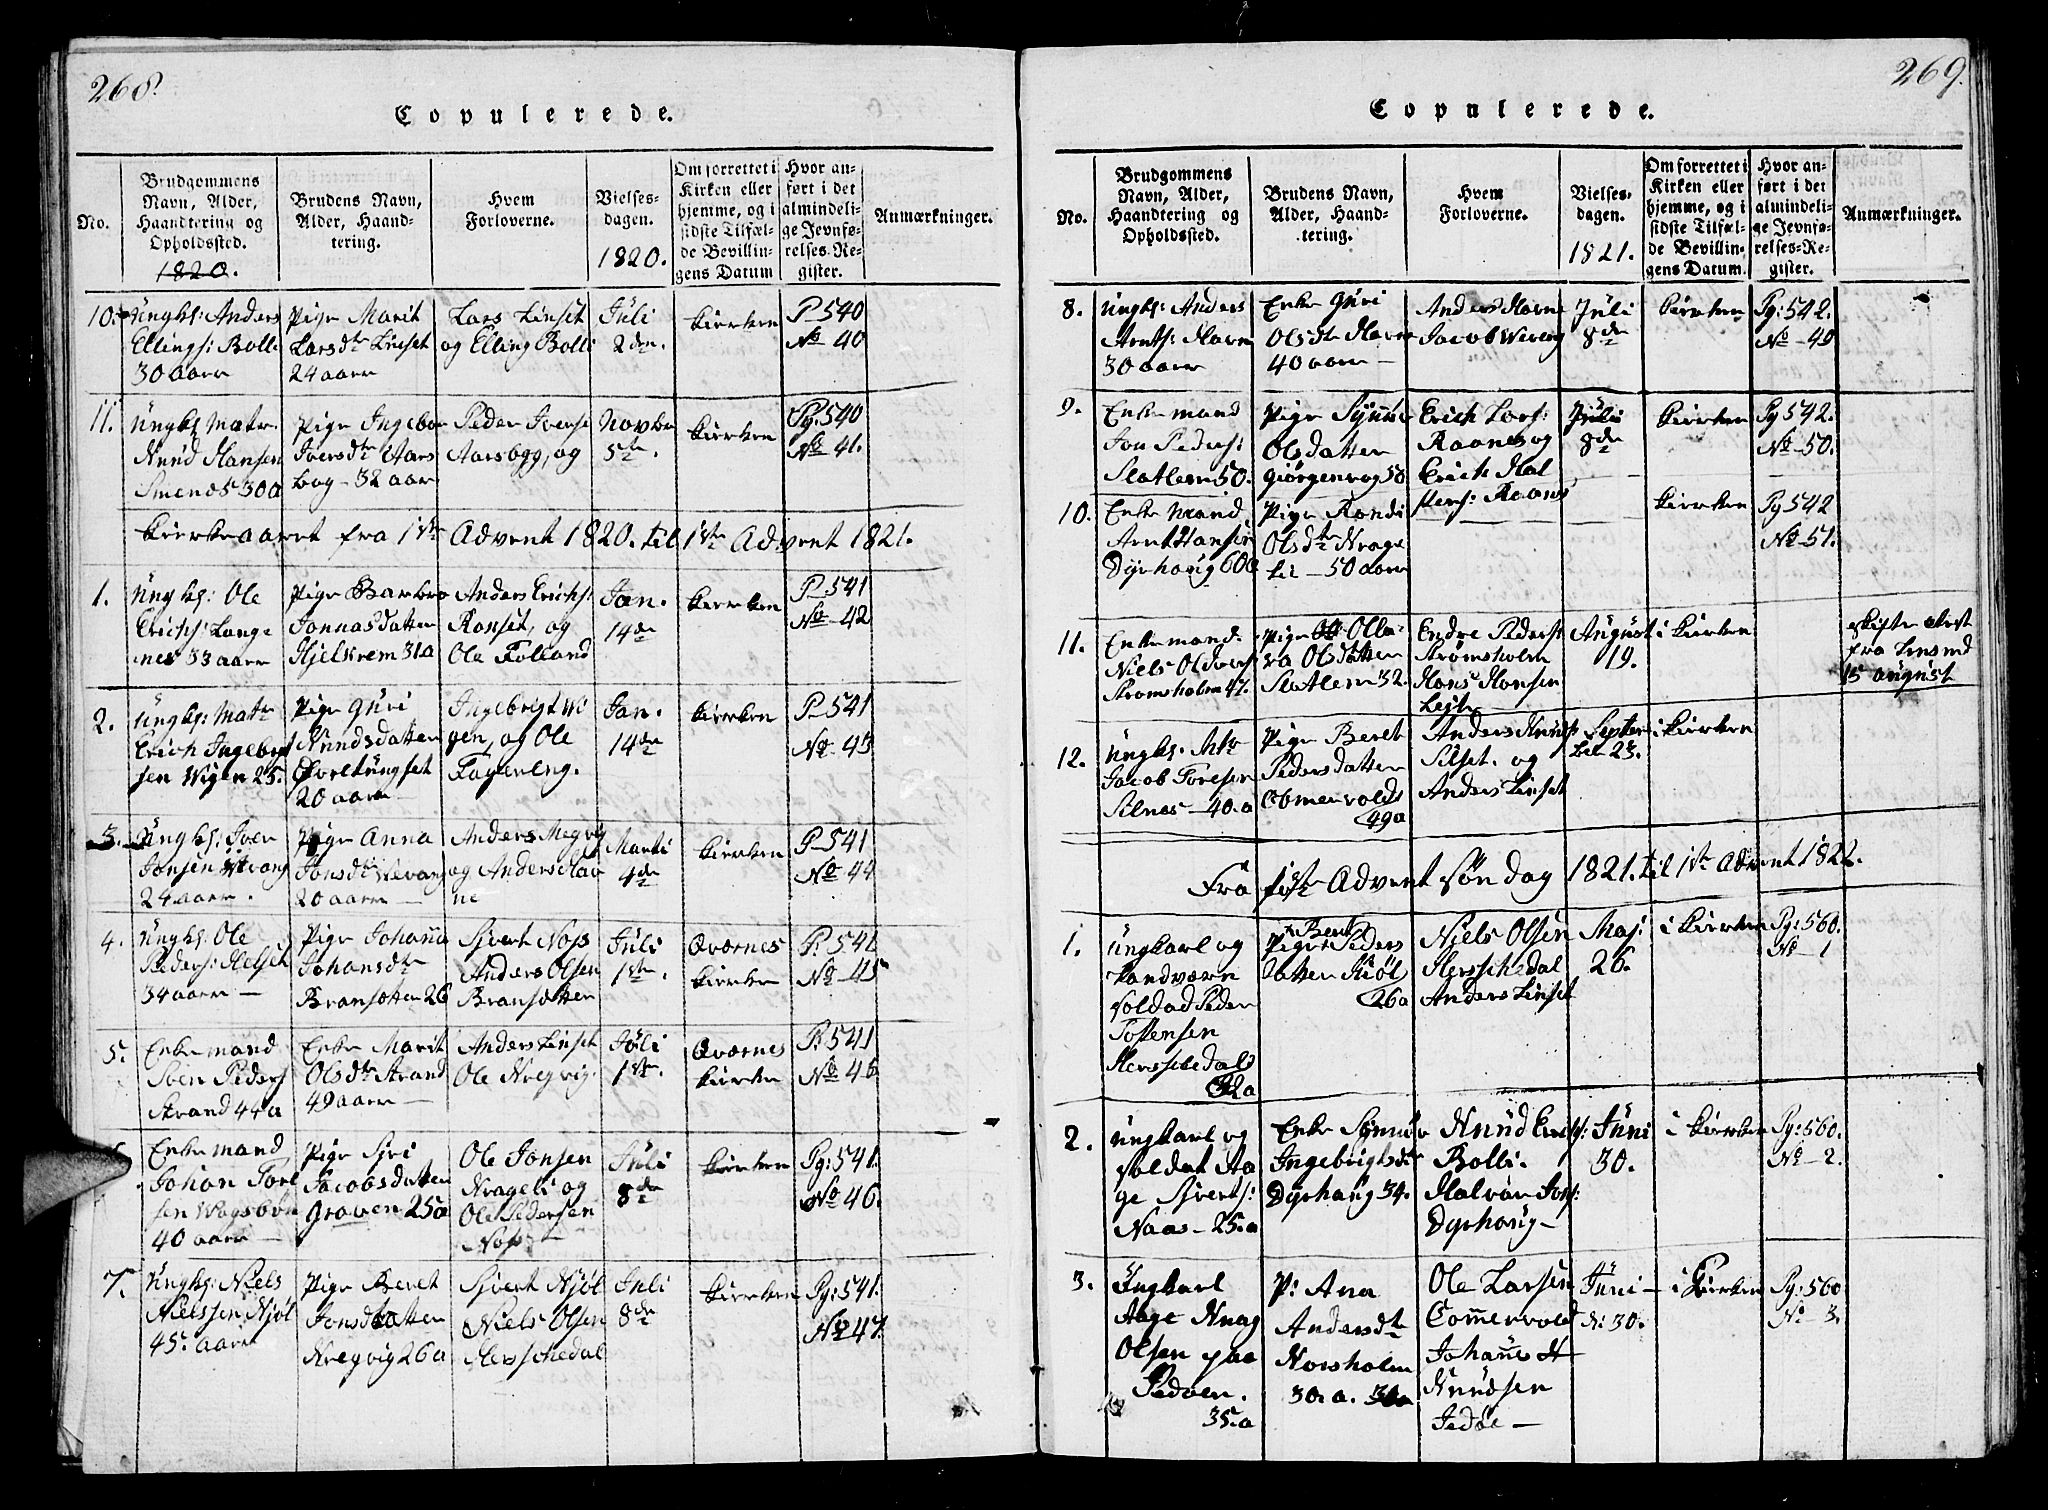 268.
Copulerede.
No.
Brudgommens Navn, Alder, Haandtering og Opholdssted.
1820.
Brudens Navn, Alder, Haandtering.
Hvem Forloverne.
Vielsesdagen.
1820.
Om forrettet i Kirken eller hjemme, og i sidste Tilfælde Bevillingens Datum
Hvor anført i det almindelige Jevnførelses-Register.
Anmærkninger.
10.
Ungks: Anders
Ellings: Bolli
30 aar
Pige Marit
Larsdtr Linset
24 aar
Lars Linset
og Elling Bolli
Juli
2den.
kierken
P 540
No 40
11.
Ungks
Knud Hansen
Smenes 30 a
Pige Ingebor
Iversdtr Aars
bog - 32 aar
Peder Iverse
Aarsbogg, og
Novbr
5te.
kierken
Pg: 540
No 41.
Kierkeaaret fra 1ste Advent 1820. til 1ste Advent 1821.
1.
Ungks: Ole
Erichs: Lange
nes 33 aar
Pige Barbro
Jonnasdatter
Hjelkrem 31 a
Anders Erichs:
Ronset, og
Ole Folland
Jan.
14de
kierken
P 541
No 42
2.
Ungks: Matr
Erich Ingebrgt
sen Wigen 25.
Pige Guri
Knudsdatter
20 aar
Ingebrigt Wi
gen, og Ole
Fagereng.
Jan.
14de
kierken
P 541
No 43
3.
Ungks: Iver
Jonsen Wevang
24 aar.
Pige Anna
Jonsdtr Wevang
20 aar
Anders Megvig
og Anders Hav
ne
Marti
4de
kierken
P 541
No 44
4.
Ungks: Ole
Peders: Helset
34 aar
Pige Johanna
Johansdtr
Bransætter 26
Sjvert Nøs
Anders Olsen
Bransætter
Juli
1ste.
Qværnes
kierken
P. 541
No 45
5.
Enkemand
Iver Peders
Strand 44 a
Enke Marit
Olsdtr Strand
49 aar
Anders Linset
Ole Kregvig.
Juli
1ste.
Qværnes
kierken
P. 541
No 46
Enkemand
Johan Torl
sen Wogsbøn
40 aar
Pige Siri
Jacobsdatter
Graven 25 a
Ole Jonsen
Krageli og
Ole Pedersen
Nøs
Juli
8de
kierken
Pg: 541.
No 46.
7.
Ungks: Niels
Nielssen Kjøl
45. aar
Pige Beret
Jonsdatter
Kregvig 26 a
Sjvert Kjøl
Niels Olsen
Herschedal
Juli
8de
kierken
Pg: 541.
No 47.
269.
Copulerede.
No.
Brudgommens Navn, Alder, Haandtering og Opholdssted.
Brudens Navn, Alder, Haandtering.
Hvem Forloverne.
Vielsesdagen.
1821.
Om forrettet i Kirken eller hjemme, og i sidste Tilfælde Bevillingens Datum.
Hvor anført i det almindelige Jevnførelses-Register.
Anmærkninger.
8.
Ungks: Anders
Arnts: Havn
30 aar
Enke Guri
Olsdtr Havn
40 aar
Anders Havne
Jacob Weveng
Juli
8de
kierken
Pg: 542.
No 49
9.
Enkemand
Jon Peders:
Slatlem 50.
Pige Synnø
Olsdatter
Giørgenvog 50
Erich Lars:
Raanes og
Erich Hal
Juli
8de
kierken
Pg 542.
No 50.
10.
Enkemand
Arnt Hansen
Dyrhaug 60 a
Pige Randi
Olsdtr Krage
lie - 50 aar
kierken
Pg 542
No 51.
11.
Enkemand
Niels
Strømsholm 47.
Pige Olla-
va Olsdatter
Slatlem 32.
Endre Peders
Strømsholm
Hans Hansen
August
19.
i kierken
skifte
fra
15 august
12.
Ungks:
Jacob Toresen
Silnes - 40. a
Pige Beret
Pedersdatter
49 a
Anders Knuds
Silset. og
Anders Linset
Septem
ber 23.
i kierken
Fra første Advent søndag 1821. til 1ste Advent 1822.
1.
Ungkarl og
Landværn
soldad Peder
Tostensen
Herschedal
32 a
Pige Beret Peders
datter Kiøl
26 a
Niels Olsen
Herschedal
Anders Linset
Maj:
26.
i kierken
Pg: 560.
No 1
2.
Ungkarl og
soldat Aa
ge Sjverts:
Naas - 25. a
Enke Synnøv
Ingebrigtsdtr
Dyrhaug 34.
Knud Erichs:
Bolli.
Halvor Jons:
Dyrhaug
Juni
30.
i kierken
Pg: 560.
No 2.
3.
Ungkarl
Aage Knag
Olsen paa
Pedøen.
35. a
P: Ana
Andersdtr
Korsholm
30. a.
Ole Larsen
Commervold
Johannes
Knudsen
Juni
30.
i Kierken
Pg: 560
No 3.